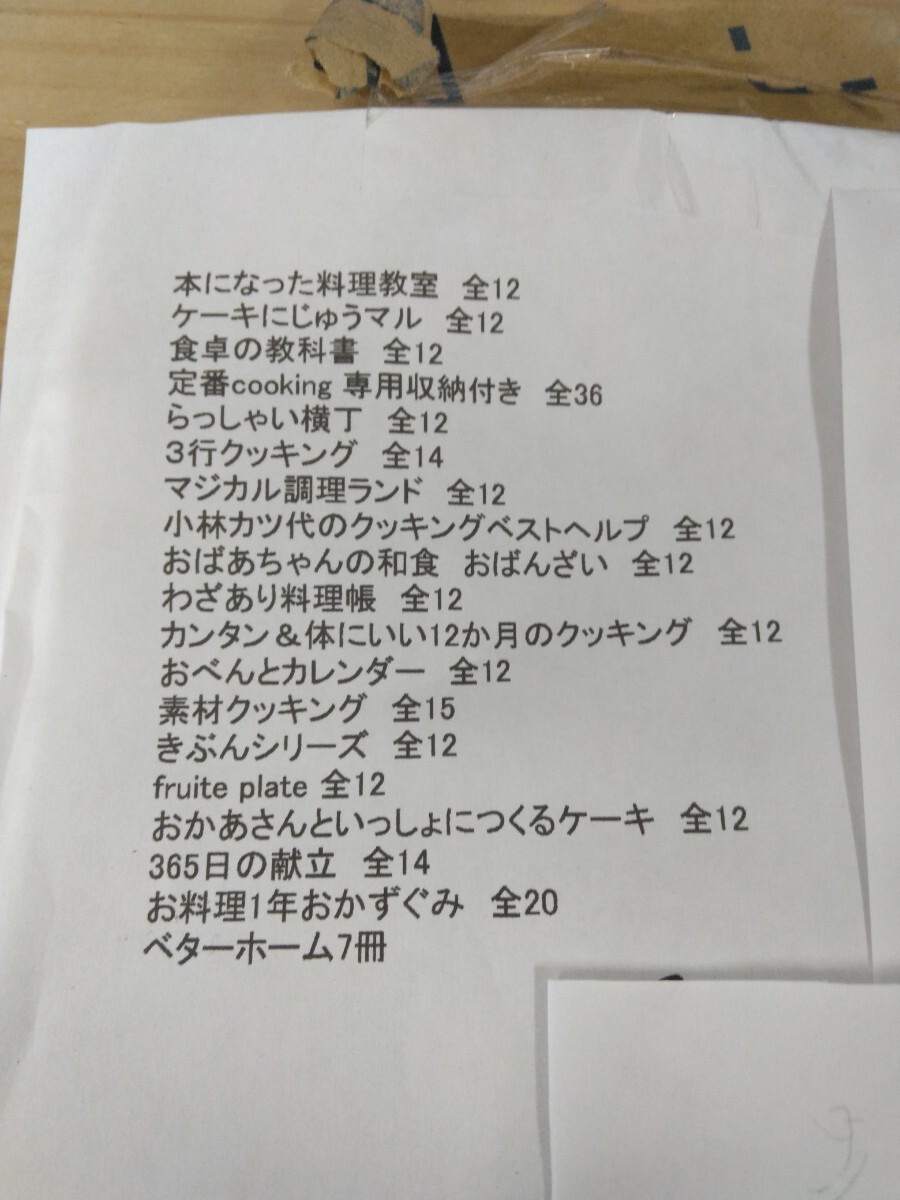 本になった料理教室　全12
ケーキにじゅうマル　全12
食卓の教科書　全12
定番cooking 専用収納付き　全36
らっしゃい横丁　全12
３行クッキング　全14
マジカル調理ランド　全12
小林カツ代のクッキングベストヘルプ　全12
おばあちゃんの和食　おばんざい　全12
わざあり料理帳　全12
カンタン＆体にいい12か月のクッキング　全12
おべんとカレンダー　全12
素材クッキング　全15
きぶんシリーズ　全12
fruite plate 全12
おかあさんといっしょにつくるケーキ　全12
365日の献立　全14
お料理1年おかずぐみ　全20
ベターホーム7冊